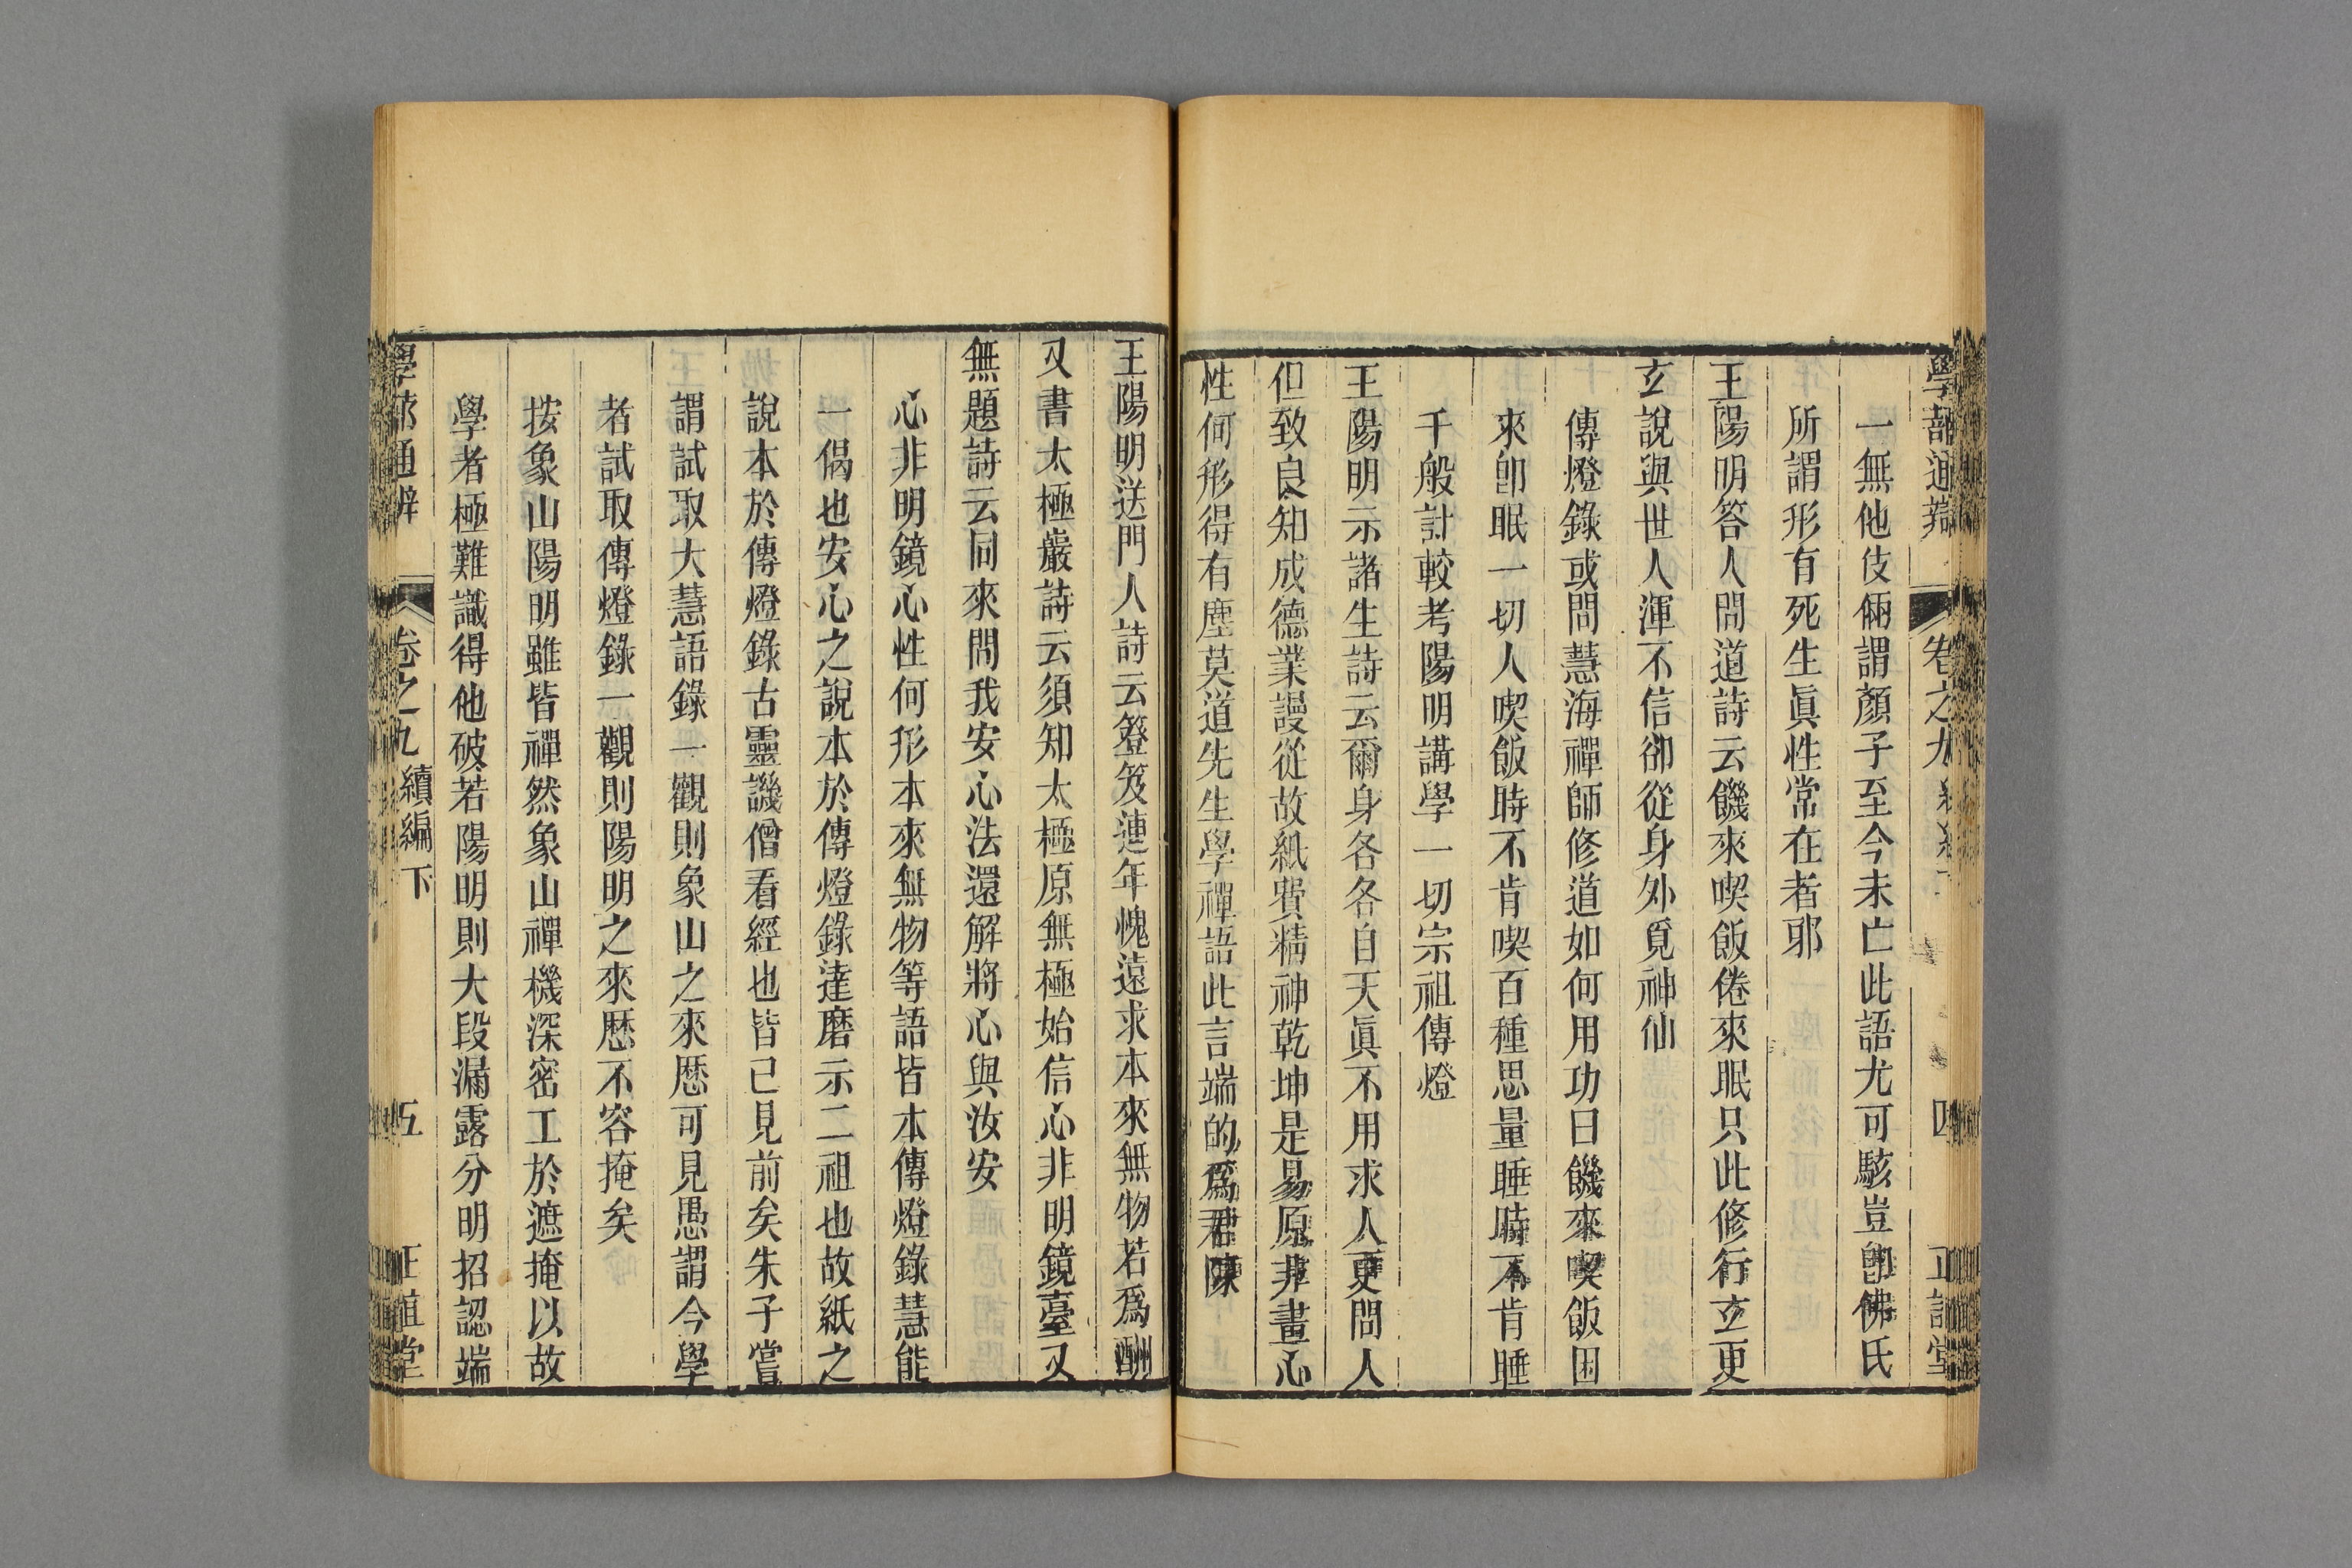 學蔀通辯 卷之九 四 正誼堂
一無他伎倆謂顏子至今未亡此語尤可駭豈卽佛氏
所謂形有死生眞性常在者耶
王陽明答人問道詩云饑來喫飯倦來眠只此修行玄更
玄說與世人渾不信卻從身外覓神仙
傳燈錄或問慧海禪師修道如何用功曰饑來喫飯困
來卽眠一切人喫飯時不肯喫百種思量睡時不肯睡
千般計較考陽明講學一切宗祖傳燈
王陽明示諸生詩云爾身各各自天眞不用求人更問人
但致良知成德業謾從故紙費精神乾坤是易原非畫心
性何形得有塵莫道先生學禪語此言端的爲君陳
王陽明送門人詩云簦笈連年愧遠求本來無物若爲酬
又書太極巖詩云須知太極原無極始信心非明鏡臺又
無題詩云同來問我安心法還解將心與汝安
心非明鏡心性何形本來無物等語皆本傳燈錄慧能
一偈也安心之說本於傳燈錄達磨示二祖也故紙之
說本於傳燈錄古靈譏僧看經也皆已見前矣朱子嘗
謂試取大慧語錄一觀則象山之來歷可見愚謂今學
者試取傳燈錄一觀則陽明之來歷不容掩矣
按象山陽明雖皆禪然象山禪機深密工於遮掩以故
學者極難識得他破若陽明則大段漏露分明招認端
學蔀通辯 卷之九 續編下 五 正誼堂